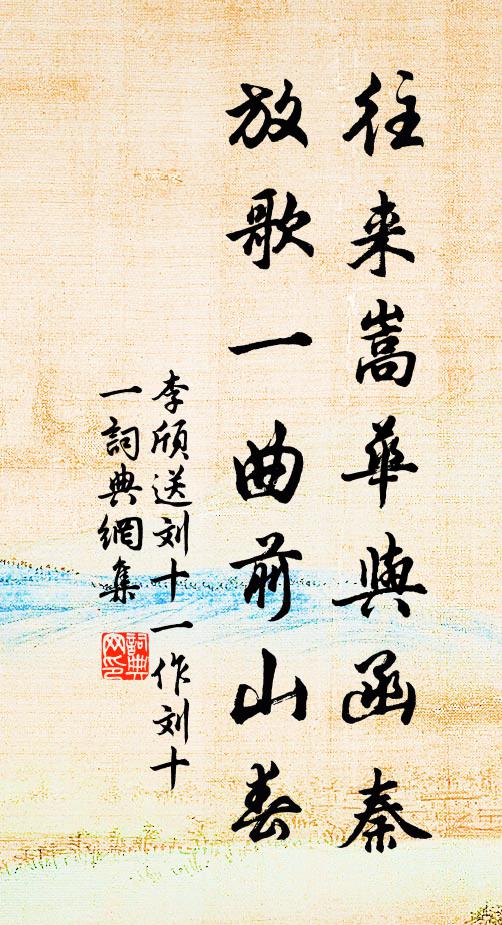 往来嵩華與函秦
放歌一曲前山春
李颀送刘十一作刘十
一詞典網集
詞典网印